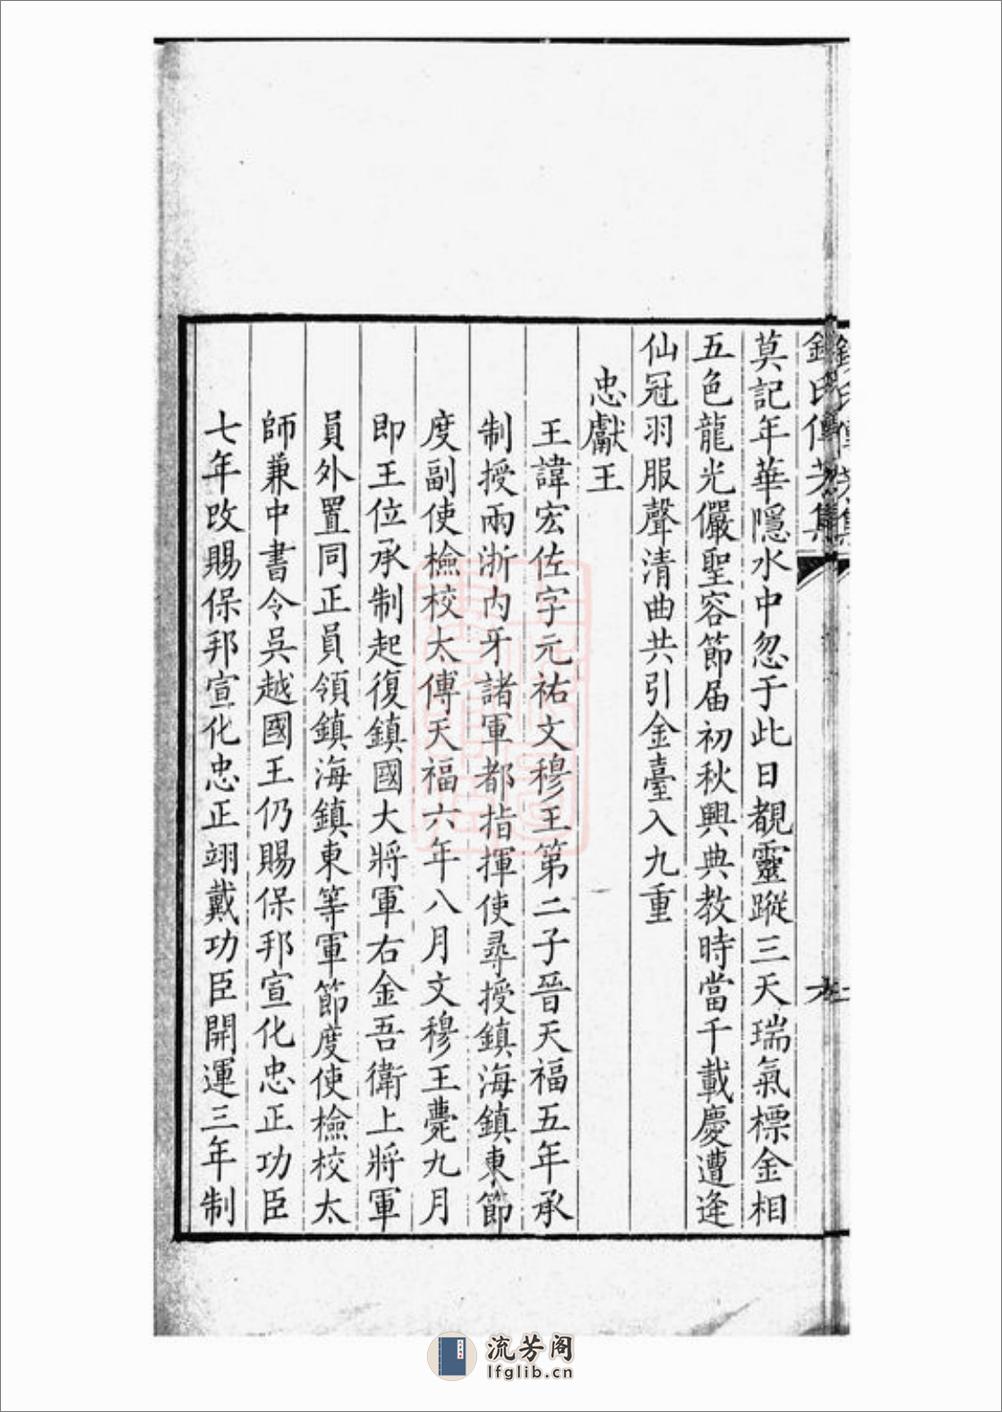 錢氏傳芳集
莫記年華隱水中忽于此日覩靈蹤三天瑞氣標金相
五色龍光儼聖容節届初秋興典教時當千載慶遭逢
仙冠羽服聲清曲共引金臺入九重
忠獻王
王諱宏佐字元祐文穆王第二子晉天福五年承
制授兩浙內牙諸軍都指揮使尋授鎮海鎮東節
度副使檢校太傅天福六年八月文穆王薨九月
即王位承制起復鎮國大將軍右金吾衛上將軍
員外置同正員領鎮海鎮東等軍節度使檢校太
師兼中書令吳越國王仍賜保邦宣化忠正功臣
七年改賜保邦宣化忠正翊戴功臣開運三年制
流芳阁
lfglib.cn